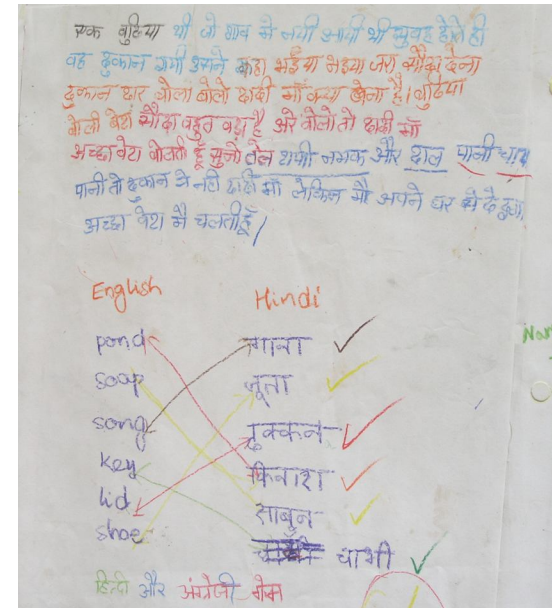 एक बुढिया थी जो गाव मे नयी आयी थी सुबह होते ही
वह दुकान गयी उसने कहा भईया भइया जरा सौदा देना
दुकान दार बोला बोलो दादी माँ क्या लेना है। बुढिया
बोली बेटा सौदा बहुत बडा है अरे बोलो तो दादी माँ
अच्छा बेटा बोलती हूँ सुनो तेल नमक और दाल पानी
पानी तो दुकान मे नही दादी माँ लेकिन मै अपने घर से दे दुगा
अच्छा बेटा मै चलती हूँ।
English Hindi
pond गाना
soap जूता
song ढुक्कन
key किनारा
lid साबुन
shoe चाभी
हिन्दी और अंग्रेजी गेम